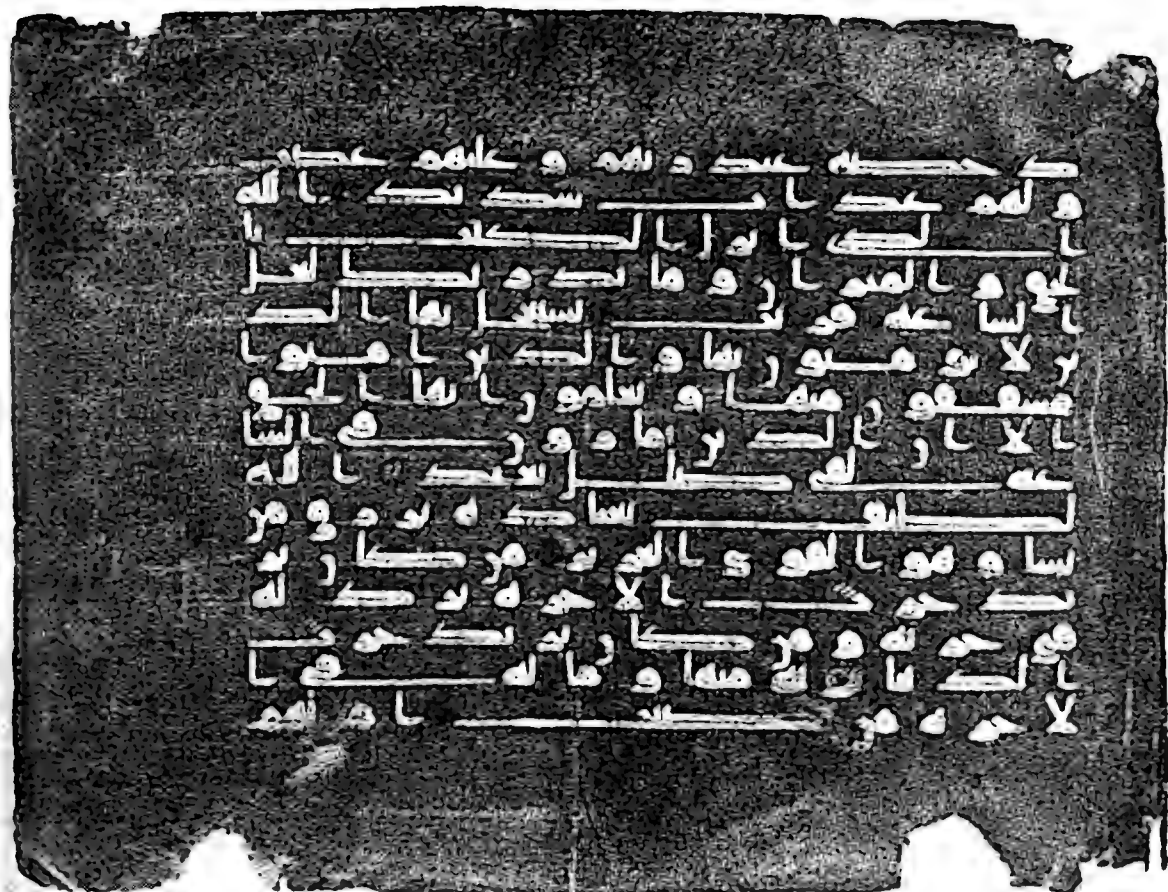 دحضة عند ربهم وعليهم غضب
ولهم عذاب شديد الله
الذي انزل الكتب با
لحق والميزان وما يدريك لعل
الساعة قريب يستعجل بها الذ
ين لا يومنون بها والذين امنوا
مشفقون منها ويعلمون انها الحق
الا ان الذين يمارون في السا
عة لفي ضلل بعيد الله
لطيف بعباده يرزق من
يشا وهو القوي العزيز من كان ير
يد حرث الاخرة نزد له
في حرثه ومن كان يريد حرث
الدنيا نوته منها وما له في ا
لاخرة من نصيب ام لهم